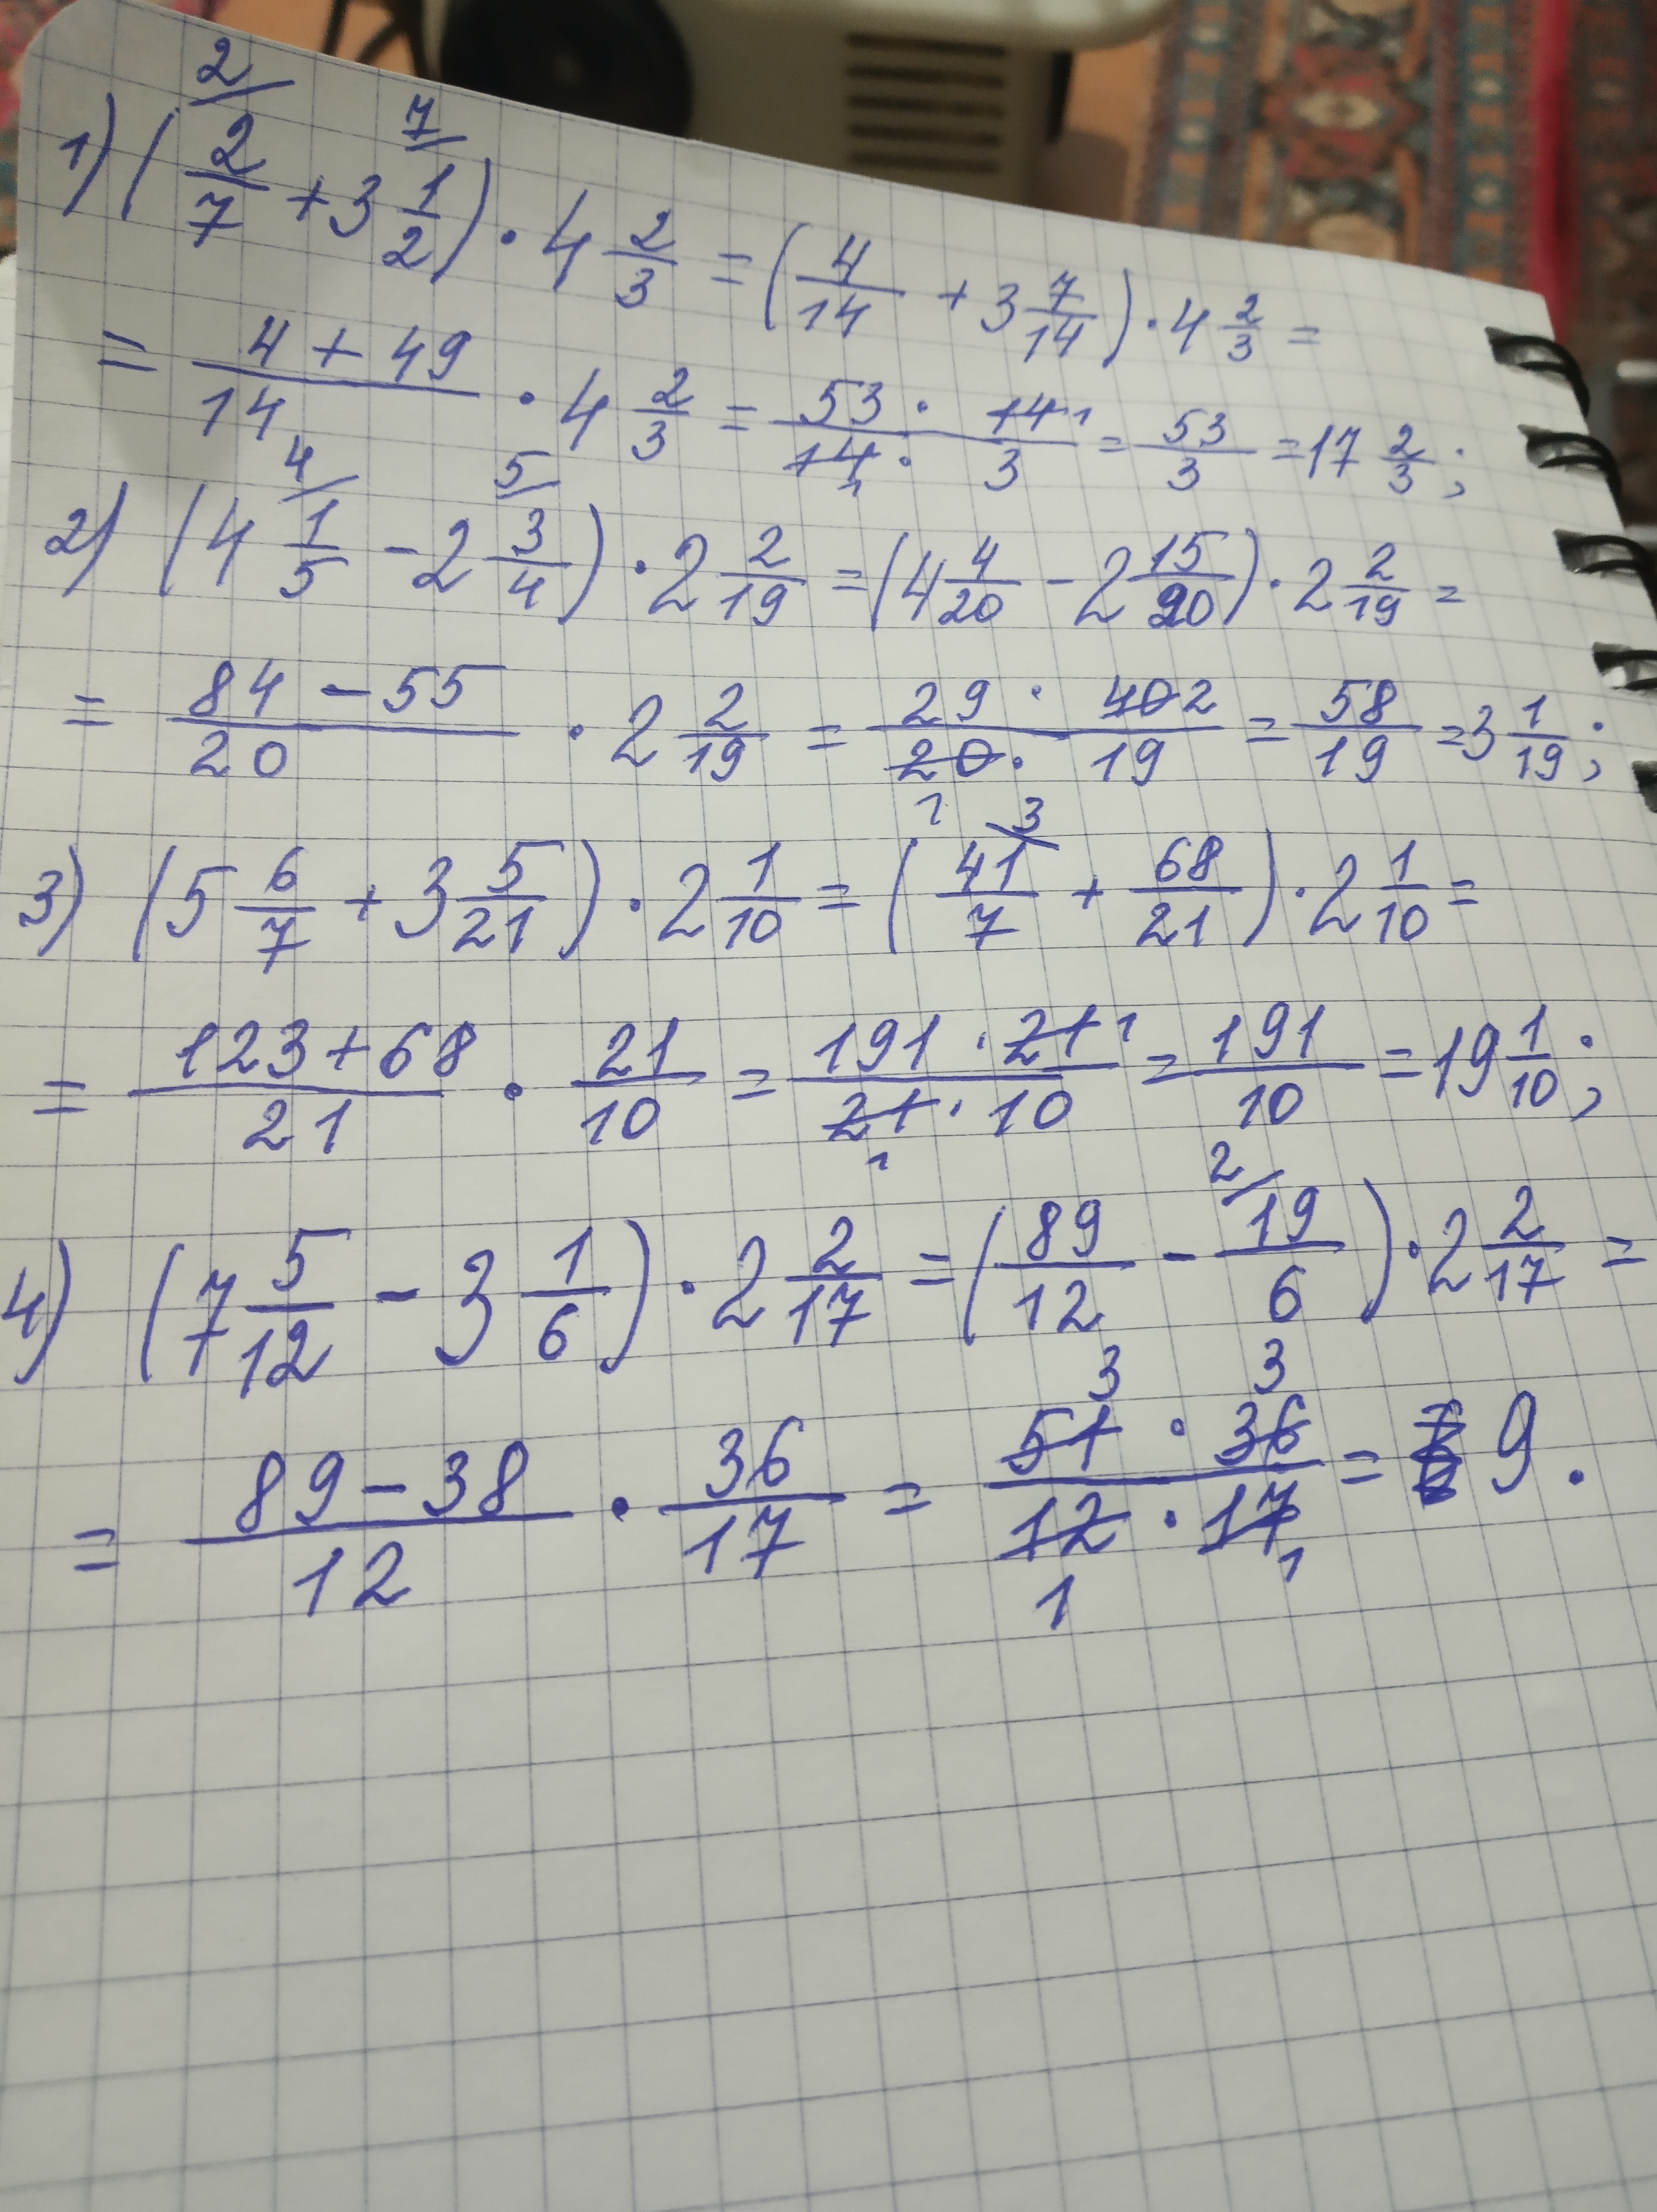 1) (2/7 + 3 1/2) · 4 2/3 = (4/14 + 3 7/14) · 4 2/3 =
= (4 + 49)/14 · 4 2/3 = (53 · 14)/(14 · 3) = 53/3 = 17 2/3;
2) (4 1/5 - 2 3/4) · 2 2/19 = (4 4/20 - 2 15/20) · 2 2/19 =
= (84 - 55)/20 · 2 2/19 = (29 · 40 2)/(20 · 19) = 58/19 = 3 1/19;
3) (5 6/7 + 3 5/21) · 2 1/10 = (41/7 + 68/21) · 2 1/10 =
= (123 + 68)/21 · 21/10 = (191 · 21)/(21 · 10) = 191/10 = 19 1/10;
4) (7 5/12 - 3 1/6) · 2 2/17 = (89/12 - 19/6) · 2 2/17 =
= (89 - 38)/12 · 36/17 = (51 · 36)/(12 · 17) = 9.